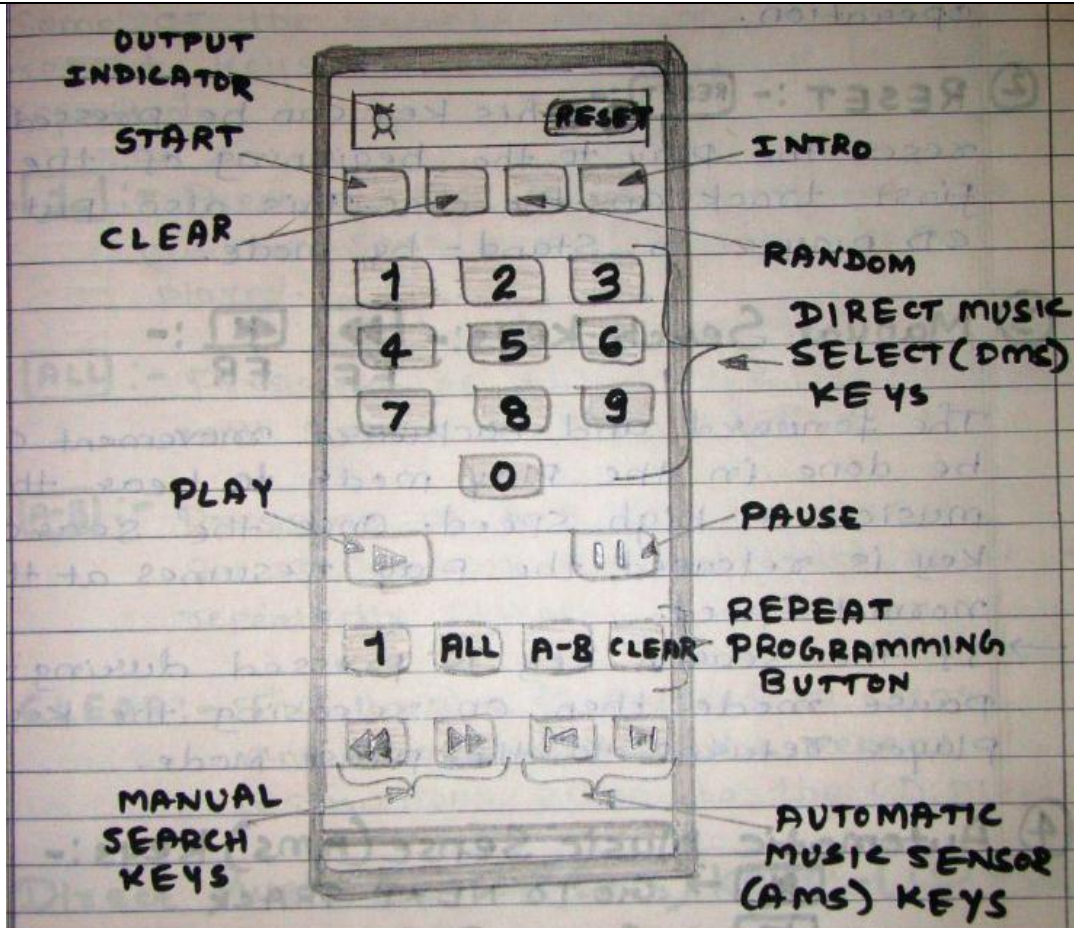 OUTPUT
INDICATOR
RESET
START
INTRO
CLEAR
RANDOM
1 2 3
DIRECT MUSIC
SELECT (DMS)
KEYS
4 5 6
7 8 9
0
PLAY
PAUSE
1 ALL A-B CLEAR
REPEAT
PROGRAMMING
BUTTON
MANUAL
SEARCH
KEYS
AUTOMATIC
MUSIC SENSOR
(AMS) KEYS